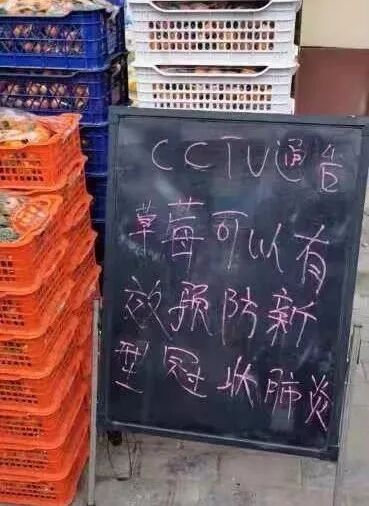 CCTV通告
草莓可以有
效预防新
型冠状肺炎